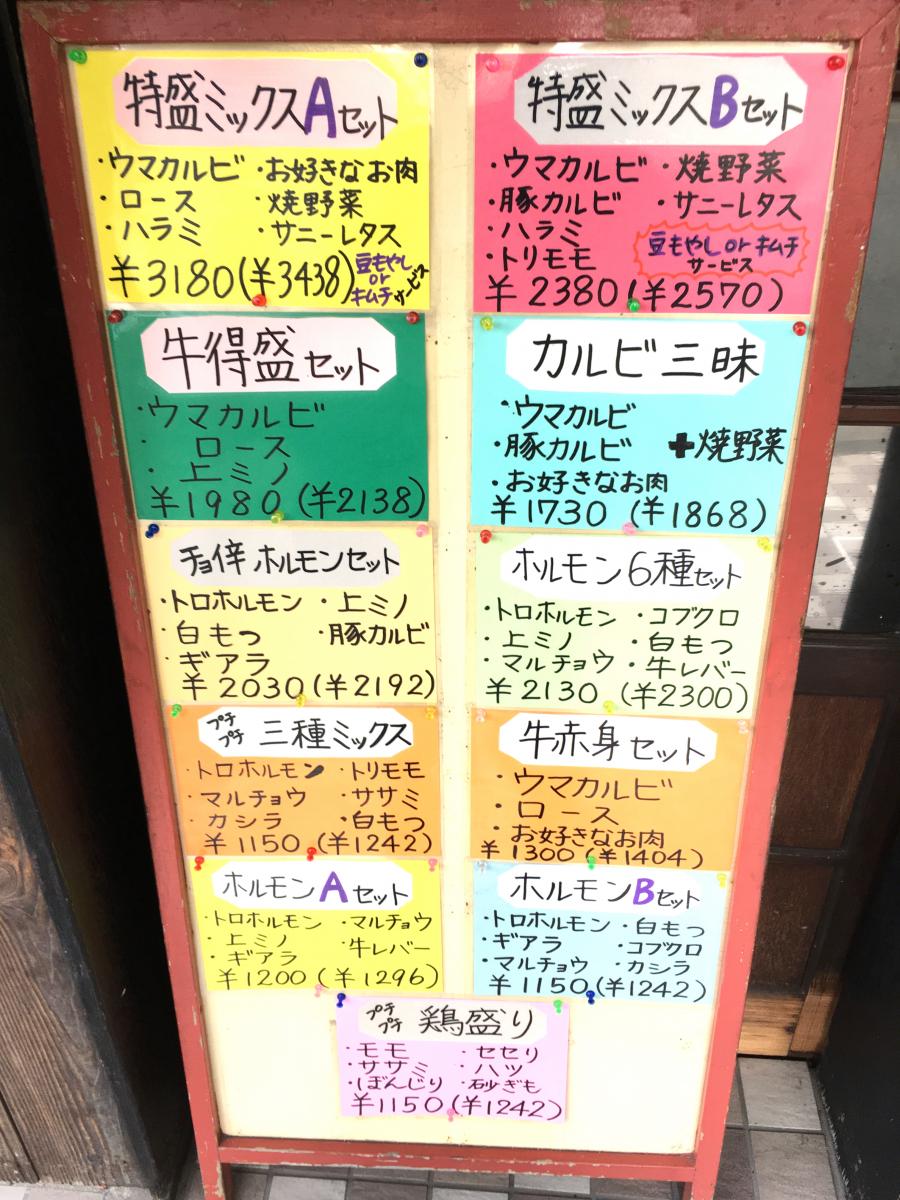 特盛ミックスAセット
・ウマカルビ ・お好きなお肉
・ロース ・焼野菜
・ハラミ ・サニーレタス
¥3180(¥3438)
豆もやし
or
キムチ
サービス
特盛ミックスBセット
・ウマカルビ ・焼野菜
・豚カルビ ・サニーレタス
・ハラミ
・トリモモ
豆もやし or キムチ
サービス
¥2380(¥2570)
牛得盛セット
・ウマカルビ
・ロース
・上ミノ
¥1980(¥2138)
カルビ三昧
・ウマカルビ
・豚カルビ ✚焼野菜
・お好きなお肉
¥1730(¥1868)
チョイ倅ホルモンセット
・トロホルモン ・上ミノ
・白もつ ・豚カルビ
・ギアラ
¥2030(¥2192)
ホルモン6種セット
・トロホルモン ・コブクロ
・上ミノ ・白もつ
・マルチョウ ・牛レバー
¥2130(¥2300)
プチプチ 三種ミックス
・トロホルモン ・トリモモ
・マルチョウ ・ササミ
・カシラ ・白もつ
¥1150(¥1242)
牛赤身セット
・ウマカルビ
・ロース
・お好きなお肉
¥1300(¥1404)
ホルモンAセット
・トロホルモン ・マルチョウ
・上ミノ ・牛レバー
・ギアラ
¥1200(¥1296)
ホルモンBセット
・トロホルモン ・白もつ
・ギアラ ・コブクロ
・マルチョウ ・カシラ
¥1150(¥1242)
プチプチ 鶏盛り
・モモ ・セセリ
・ササミ ・ハツ
・ぼんじり ・砂ぎも
¥1150(¥1242)